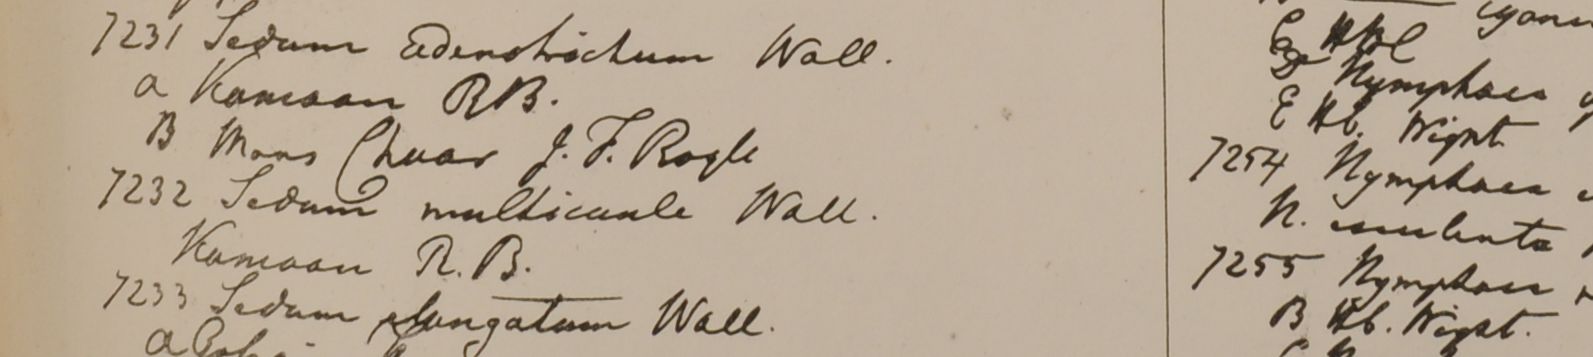 7231 Sedum adenotrichum Wall.
a Kamaon R.B.
B Mons Chuar J. F. Royle
7232 Sedum multicaule Wall.
Kamaon R. B.
7233 Sedum elongatum Wall.
a
E Hb. Wight
7254 Nymphaea
N. esculenta
7255 Nymphaea
B Hb. Wight.